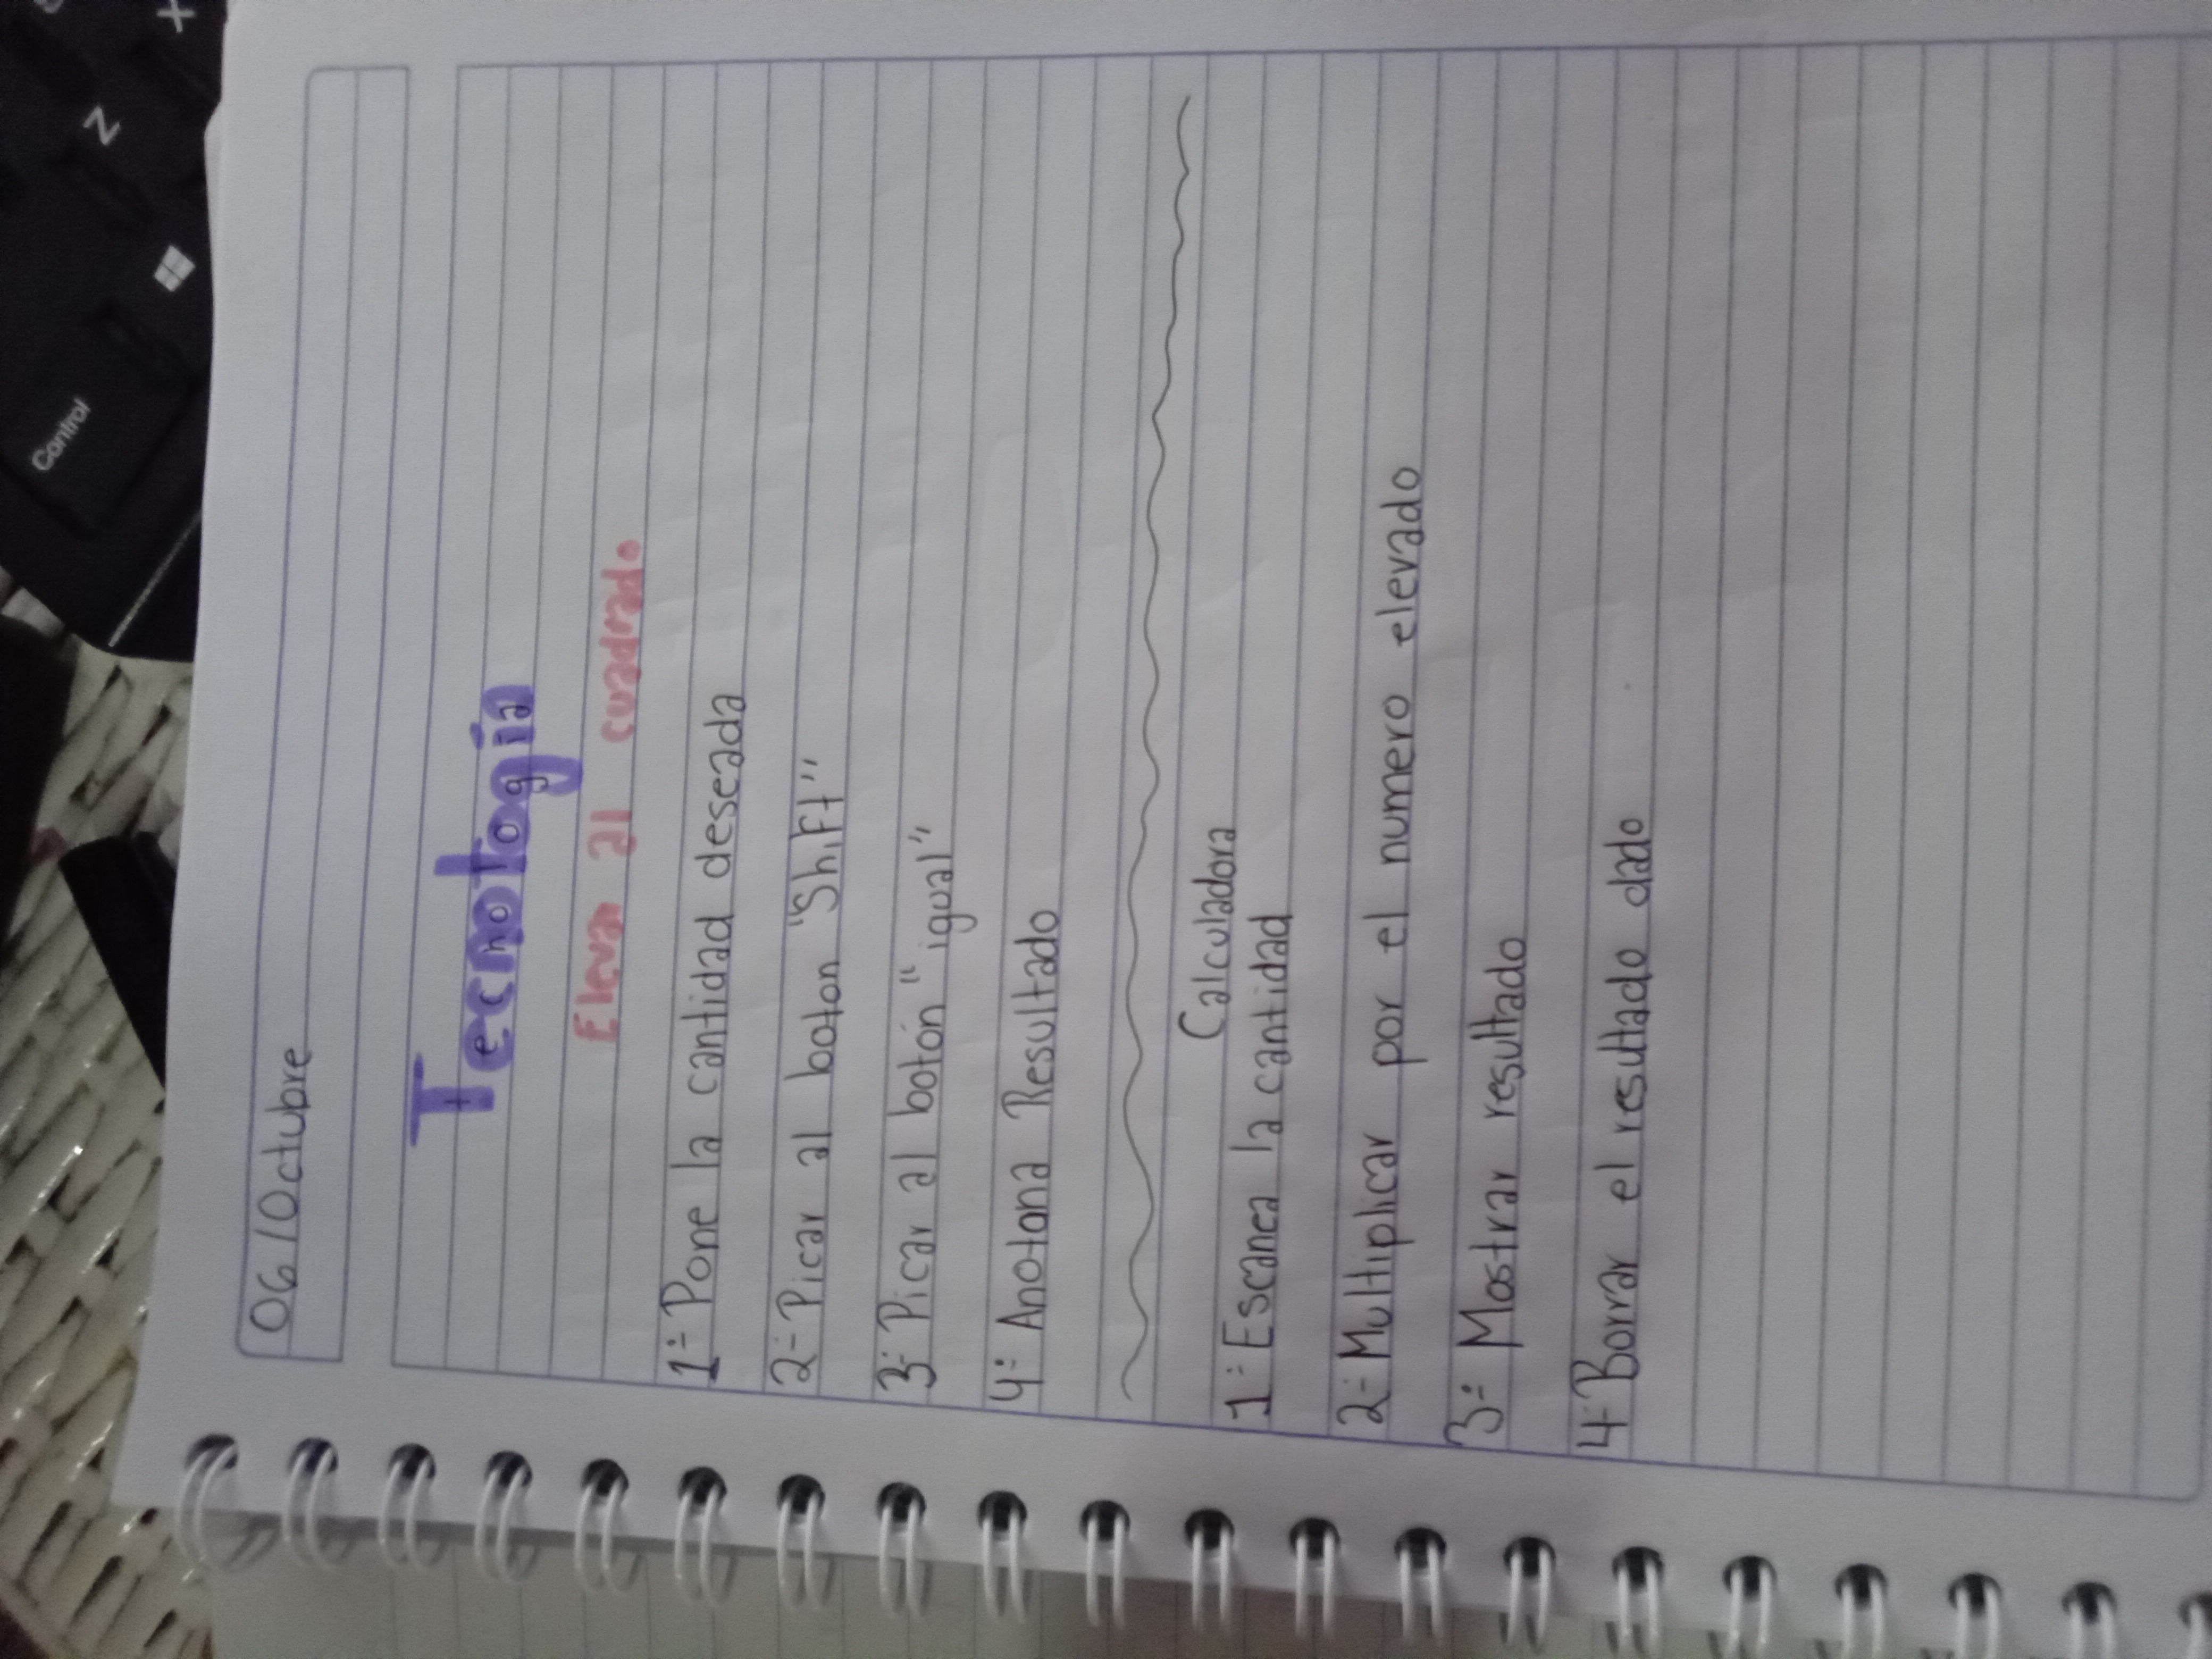 06/Octubre
Tecnologia
Elevar al cuadrado
1- Pone la cantidad deseada
2- Picar al boton "Shift"
3- Picar al botón "igual"
4- Anotona Resultado
Calculadora
1- Escanea la cantidad
2- Multiplicar por el numero elevado
3- Mostrar resultado
4- Borrar el resultado dado
Control
Z
X